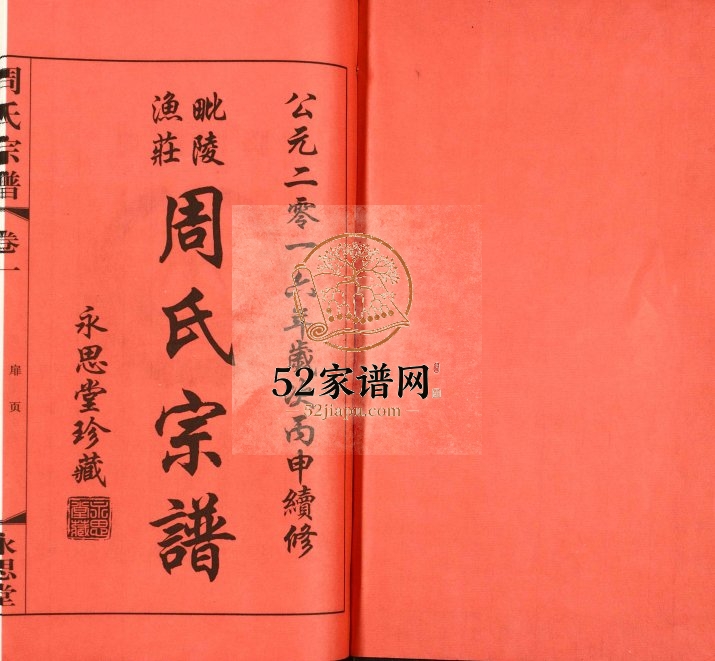 公元二零一六年歲次丙申續修
毗陵
漁莊
周氏宗譜
永思堂珍藏
永思堂藏
周氏宗譜
卷一
扉页
永思堂
52家谱网
52jiapu.com